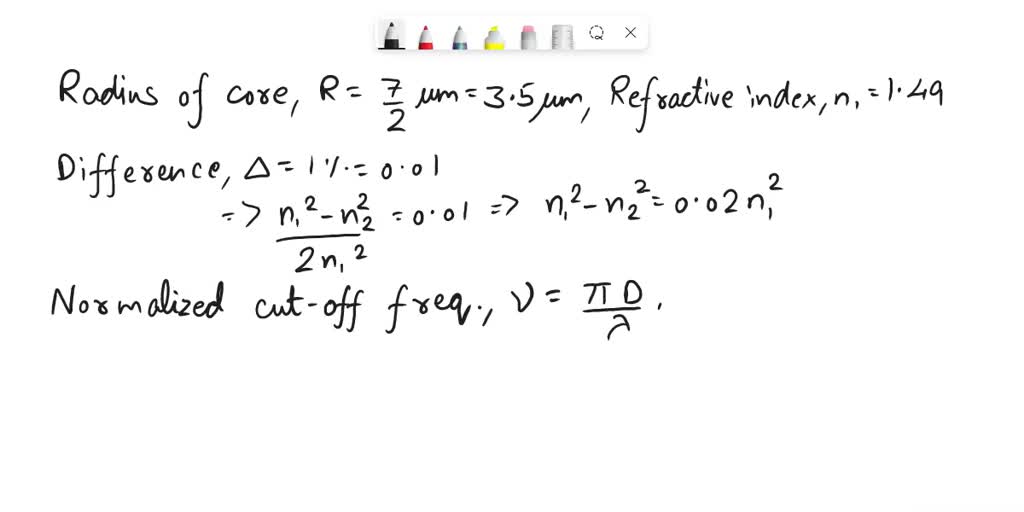 Radius of core, R = 7/2 μm = 3.5 μm, Refractive index, n₁ = 1.49
Difference, Δ = 1 % = 0.01
=> n₁² - n₂² / 2n₁² = 0.01 => n₁² - n₂² = 0.02 n₁²
Normalized cut-off freq., ν = πD/λ .